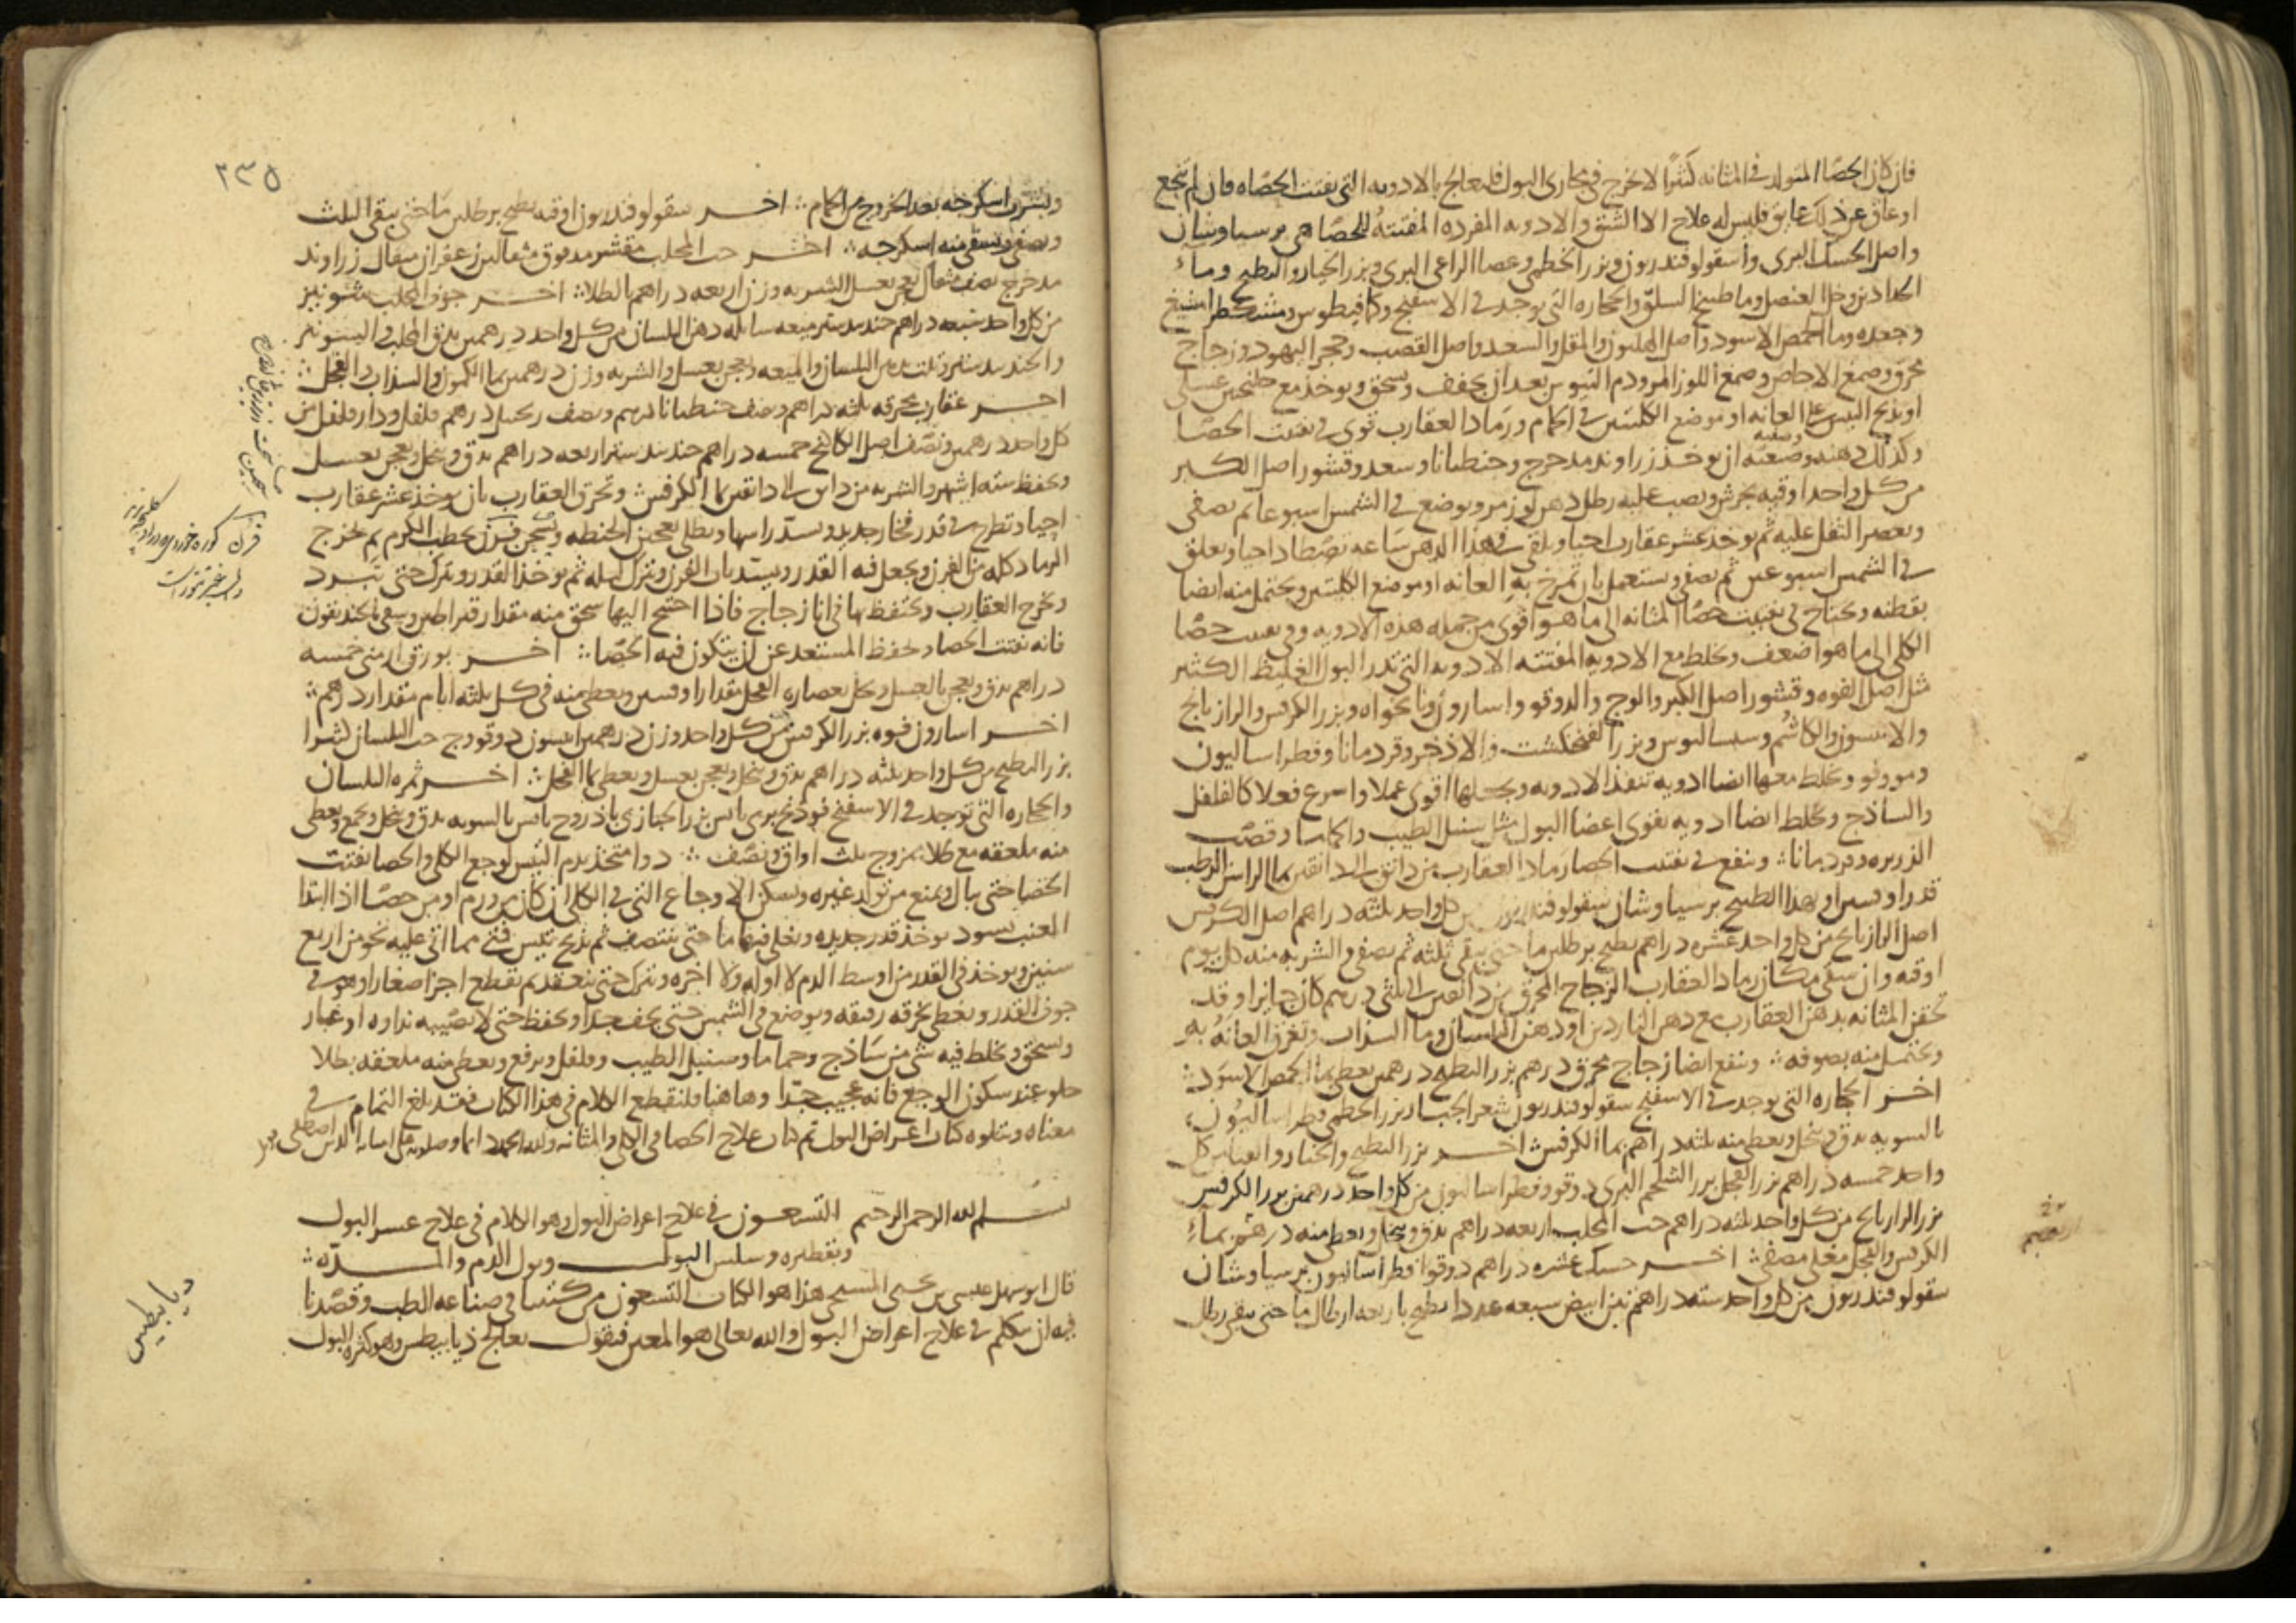 فان كان الحصا المتولد في المثانه كثيرا لا يخرج في مجارى البول فليعالج بالادويه التي تفتت الحصاه فان لم ينجع
او عاق عن ذلك عايق فليس له علاج الا الشق والادويه المفرده المفتته للحصا هي برسياوشان
واصل الحسك البرى واسقولوقندريون وبزر الخطمى وعصا الراعى البرى وبزر الخيار والبطيخ وماء
الحدادين وخل العنصل وما طبيخ السلق والحجاره التي توجد في الاسفنج وكمافيطوس ومشكطرامشيغ
وجعده وما الحمص الاسود واصل الهليون والمقل والسعد واصل القصب وحجر اليهود وزجاج
محرق وصمغ الاجاص وصمغ اللوز المر ودم التيوس بعد ان يجفف ويسحق ويوخذ مع
او يذبح التيس على العانه او موضع الكليتين في الحمام ورماد العقارب قوى في تفتت الحصا
وكذلك دهنه وصنعته ان يوخذ زراوند مدحرج وجنطيانا وسعد وقشور اصل الكبر
من كل واحد اوقيه يجرش ويصب عليه رطل دهن لوز مر ويوضع في الشمس اسبوعا ثم يصفى
ويعصر الثفل عليه ثم يوخذ عشر عقارب احيا ويلقى في هذا الدهن ساعه تصطاد احيا ويعلق
في الشمس اسبوعين ثم يصفى ويستعمل بان تمرخ به العانه او موضع الكليتين ويحتمل منه ايضا
بقطنه ويحتاج في تفتيت حصا المثانه الى ما هو اقوى من جمله هذه الادويه وفي تفتيت حصا
الكلى الى ما هو اضعف ويخلط مع الادويه المفتته الادويه التي تدر البول الغليظ الكثير
مثل اصل الفوه وقشور اصل الكبر والوج والدوقو واسارون ونانخواه وبزر الكرفس والرازيانج
والانيسون والكاشم وسساليوس وبزر الفنجنكشت والاذخر وقردمانا وفطراساليون
ومو وفو ويخلط معها ايضا ادويه تنفذ الادويه وتجعلها اقوى عملا واسرع فعلا كالفلفل
والساذج ويخلط ايضا ادويه تقوى اعضا البول مثل سنبل الطيب والحماما وقصب
الذريره وقردمانا وينفع في تفتيت الحصا رماد العقارب من دانق الى دانقين بما الراس الرطب
قدر اوقيتين او بهذا الطبيخ برسياوشان سقولوقندريون من كل واحد ثلثه دراهم اصل الكرفس
اصل الرازيانج من كل واحد عشره دراهم يطبخ برطلين ما حتى يبقى ثلثه ثم يصفى والشربه منه كل يوم
اوقيه وان سقى مكان رماد العقارب الزجاج المحرق من دانقين الى ثلثى درهم كان جايزا وقد
تحقن المثانه بدهن العقارب مع دهن الناردين او دهن البلسان وما السذاب وتعرق العانه به
ويحتمل منه بصوفه وينفع ايضا زجاج محرق درهم بزر البطيخ درهمين يعطى بما الحمص الاسود
اخر الحجاره التي توجد في الاسفنج سقولوقندريون شعر الجبار بزر الخطمى فطراساليون
بالسويه يدق وينخل ويعطى منه ثلثه دراهم بما الكرفس اخر بزر البطيخ والخيار والقثا من كل
واحد خمسه دراهم بزر الفجل بزر الشلجم البرى دوقو وفطراساليون من كل واحد درهمين بزر الكرفس
بزر الرازيانج من كل واحد ثلثه دراهم حب المحلب اربعه دراهم يدق وينخل ويعطى منه درهم بماء
الكرفس والفجل مغلى مصفى اخر حسك عشره دراهم دوقوا فطراساليون برسياوشان
سقولوقندريون من كل واحد سته دراهم تين ابيض سبعه عددا يطبخ باربعه ارطال ما حتى يبقى رطل
٢٣٥
ويشرب اسكرجه بعد الخروج من الحمام اخر سقولوقندريون اوقيه يطبخ برطلين ما حتى يبقى الثلث
ويصفى ويسقى منه اسكرجه اخر حب المحلب مقشر مدقوق مثقالين زعفران مثقال زراوند
مدحرج نصف مثقال يعجن بعسل الشربه وزن اربعه دراهم بالطلا اخر جوف المحلب شونيز
من كل واحد سبعه دراهم جندبيدستر ميعه سايله دهن البلسان من كل واحد درهمين يدق المحلب والشونيز
والجندبيدستر ويلت بدهن البلسان والميعه ويعجن بعسل والشربه وزن درهمين بما الكمون والسذاب والفجل
اخر عقارب محرقه ثلثه دراهم ونصف جنطيانا درهم ونصف زنجبيل درهم فلفل ودارفلفل من
كل واحد درهمين ونصف اصل الكاكنج خمسه دراهم جندبيدستر اربعه دراهم يدق وينخل ويعجن بعسل
ويحفظ سته اشهر والشربه من دانق الى دانقين بما الكرفس وتحرق العقارب بان يوخذ عشر عقارب
احيا وتطرح في قدر فخار جديد ويسد راسها ويطلى بعجين الحنطه ويسجر فرن بحطب الكرم ثم يخرج
الرماد كله من الفرن ويجعل فيه القدر ويسد باب الفرن ويترك ليله ثم يوخذ القدر ويترك حتى تبرد
وتخرج العقارب وتحتفظ بها في انا زجاج فاذا احتيج اليها سحق منه مقدار قيراطين وسقى بالخنديقون
فانه يفتت الحصا ويحفظ المستعد عن ان يتكون فيه الحصا اخر بورق ارمنى خمسه
دراهم يدق ويعجن بالعسل ويحل بعصاره الفجل مقدار اوقيتين ويعطى منه في كل ثلثه ايام مقدار درهم
اخر اسارون فوه بزر الكرفس من كل واحد وزن درهمين انيسون دوقو وج حب البلسان
بزر البطيخ من كل واحد ثلثه دراهم يدق وينخل ويعجن بعسل ويعطى بما الفجل اخر ثمره البلسان
والحجاره التي توجد في الاسفنج فودنج برى يابس بزر الخبازى باذروج يابس بالسويه يدق وينخل ويجمع ويعطى
منه ملعقه مع طلا ممزوج ثلث اواق ونصف دوا متخذ بدم التيس لوجع الكلى والحصا يفتت
الحصا حتى يبال ويمنع من تولد غيره ويسكن الاوجاع التي في الكلى ان كان من ورم او من حصا اذا ابتدا
العنب يسود يوخذ قدر جديده ويغلى فيها ما حتى ينتصف ثم يذبح تيس فتى مما اتى عليه نحو من اربع
سنين ويوخذ في القدر من اوسط الدم لا اوله ولا اخره ويترك حتى ينعقد ثم يقطع اجزا صغارا وهو في
جوف القدر ويغطى بخرقه رقيقه ويوضع في الشمس حتى يجف جدا ويحفظ حتى لا يصيبه نداوه او غبار
ويسحق ويخلط فيه شى من ساذج وحماما وسنبل الطيب وفلفل ويرفع ويعطى منه ملعقه بطلا
حلو عند سكون الوجع فانه عجيب جدا وهاهنا فلنقطع الكلام في هذا الكتاب فقد بلغ التمام في
معناه ويتلوه كتاب اعراض البول تم كتاب علاج الحصا في الكلى والمثانه ولله الحمد
بسم الله الرحمن الرحيم التسعون في علاج اعراض البول وهو الكلام في علاج عسر البول
وتقطيره وسلس البول وبول الدم والمده
قال ابو سهل عيسى بن يحيى المسيحى هذا هو الكتاب التسعون من كتبنا في صناعه الطب وقصدنا
فيه ان نتكلم في علاج اعراض البول والله تعالى هو المعين فنقول يعالج ذيابيطس وهو كثره البول
ديابيطس